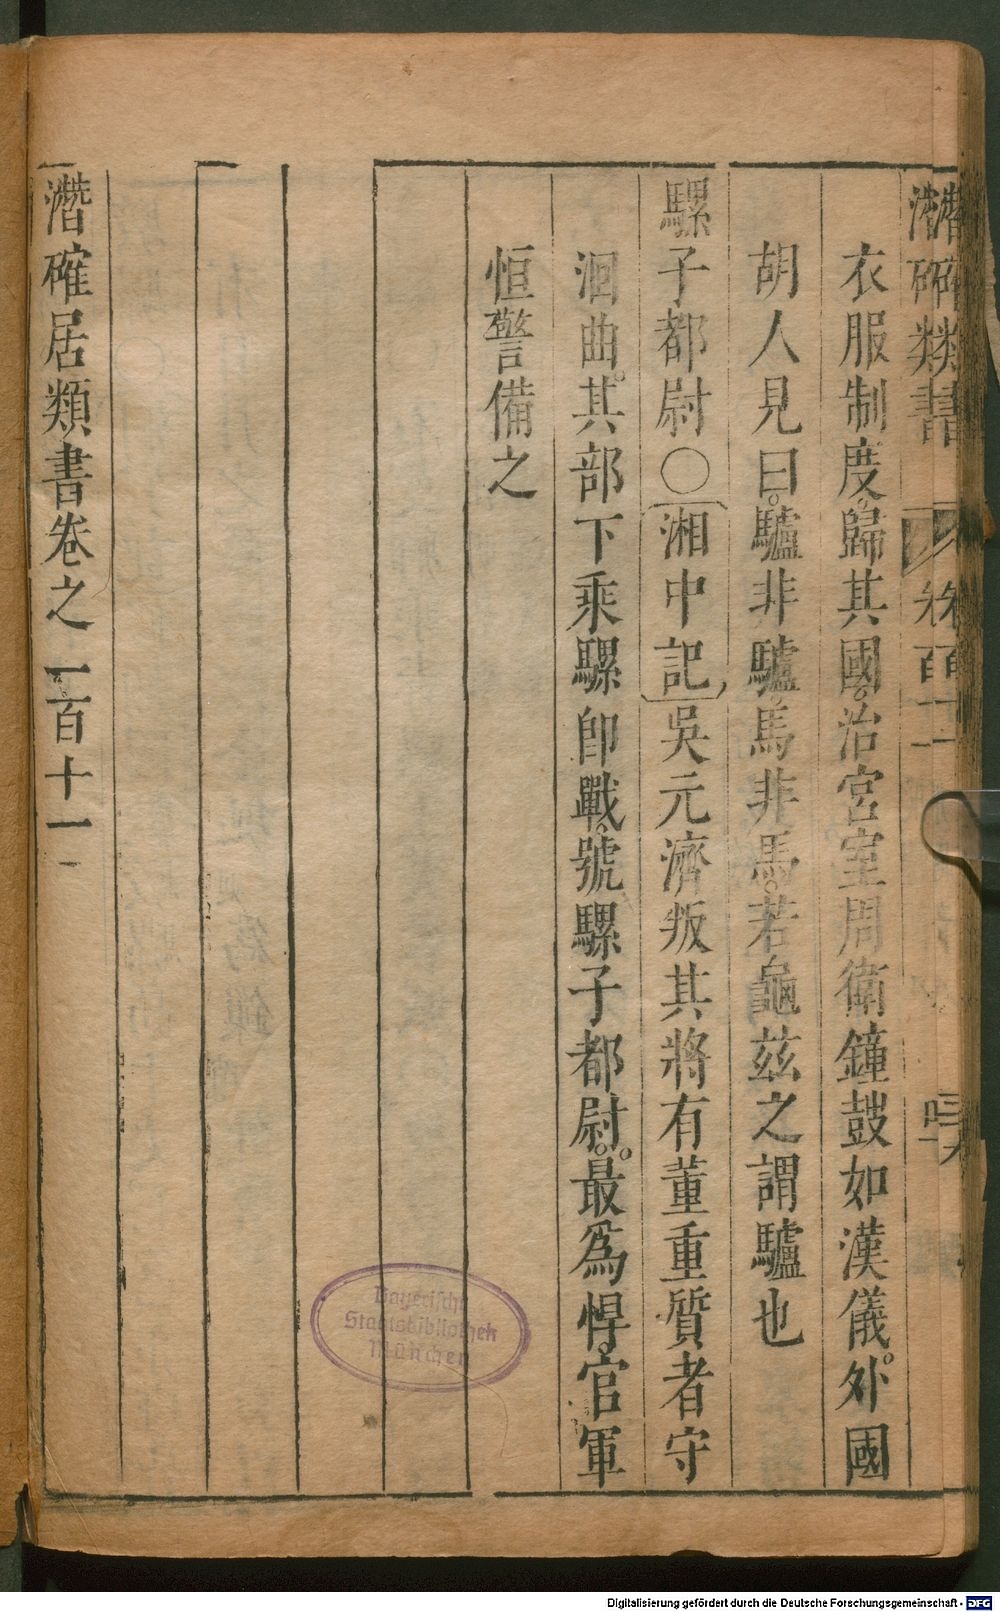 潛確類書 卷百十一
衣服制度。歸其國。治宮室周衛鐘鼓如漢儀。外國
胡人見曰。驢非驢。馬非馬。若龜茲之謂驢也
騾子都尉〇湘中記吳元濟叛其將有董重質者守
洄曲。其部下乘騾卽戰。號騾子都尉。最爲悍。官軍
恒警備之
潛確居類書卷之一百十一
Bayerische
Staatsbibliothek
München
Digitalisierung gefördert durch die Deutsche Forschungsgemeinschaft - DFG